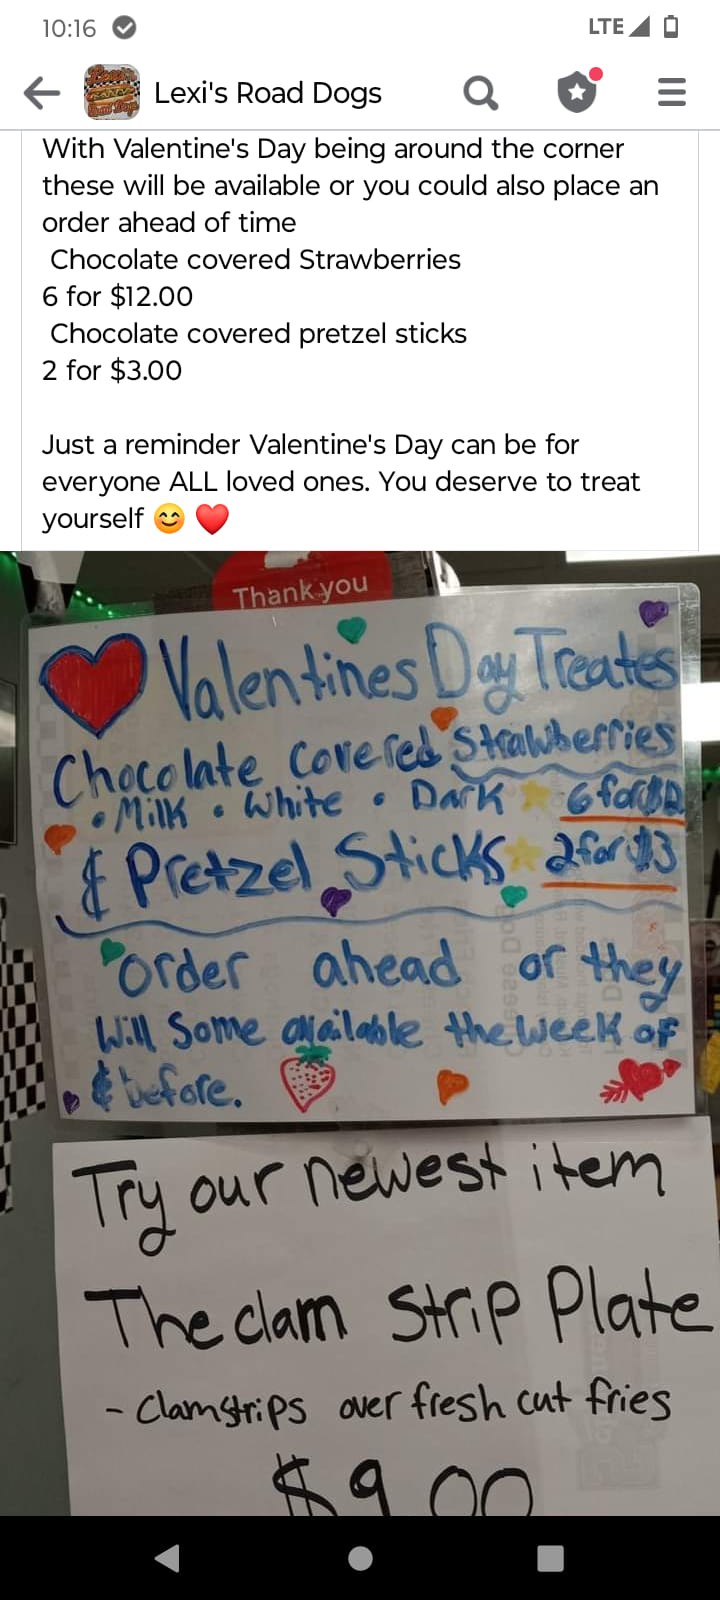 10:16
LTE
Lexi's Road Dogs
With Valentine's Day being around the corner
these will be available or you could also place an
order ahead of time
Chocolate covered Strawberries
6 for $12.00
Chocolate covered pretzel sticks
2 for $3.00
Just a reminder Valentine's Day can be for
everyone ALL loved ones. You deserve to treat
yourself 😊 ❤️
Thank you
Valentines Day Treates
Chocolate covered Strawberries
• Milk • White • Dark 6 for $12
& Pretzel Sticks 2 for $3
order ahead or they
Will Some available the week of
& before.
Try our newest item
The clam Strip Plate
- Clamstrips over fresh cut fries
$9.00